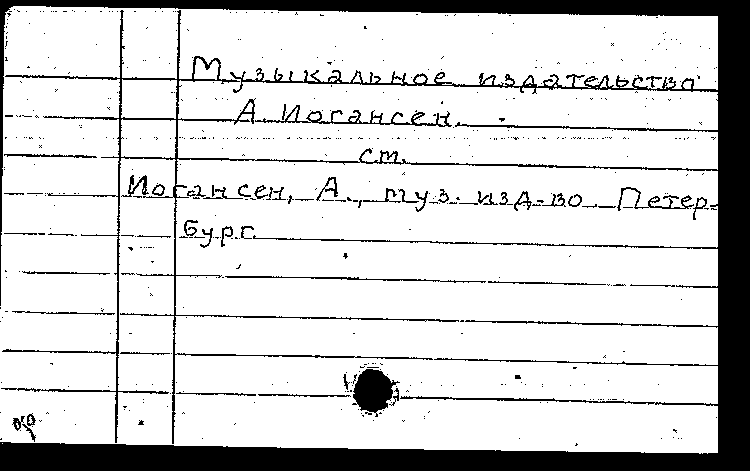 Музыкальное издательство
А. Иогансен.
см.
Иогансен, А., муз. изд-во. Петер-
бург.